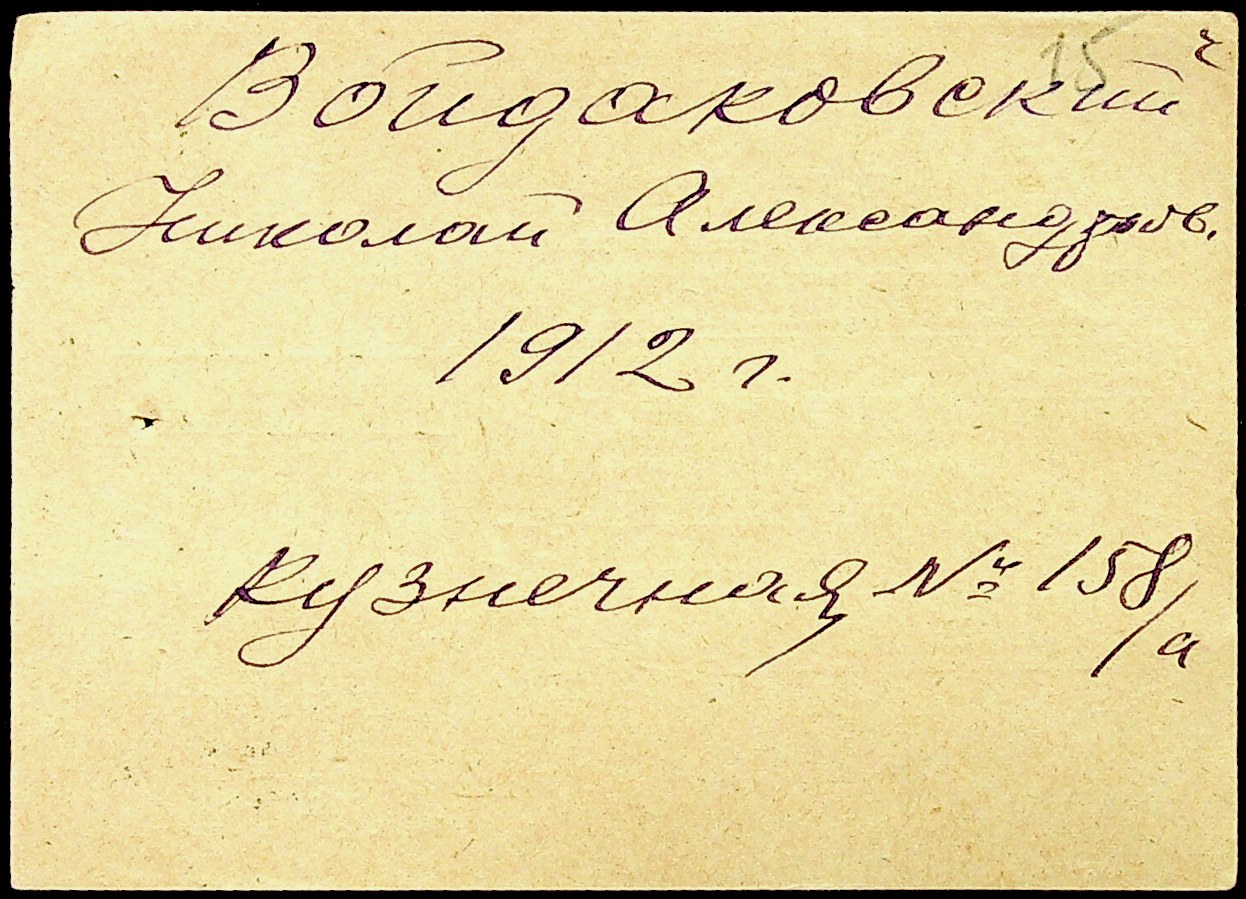 15
Войдаковский
Николай Александров.
1912 г.
Кузнечная № 158/а